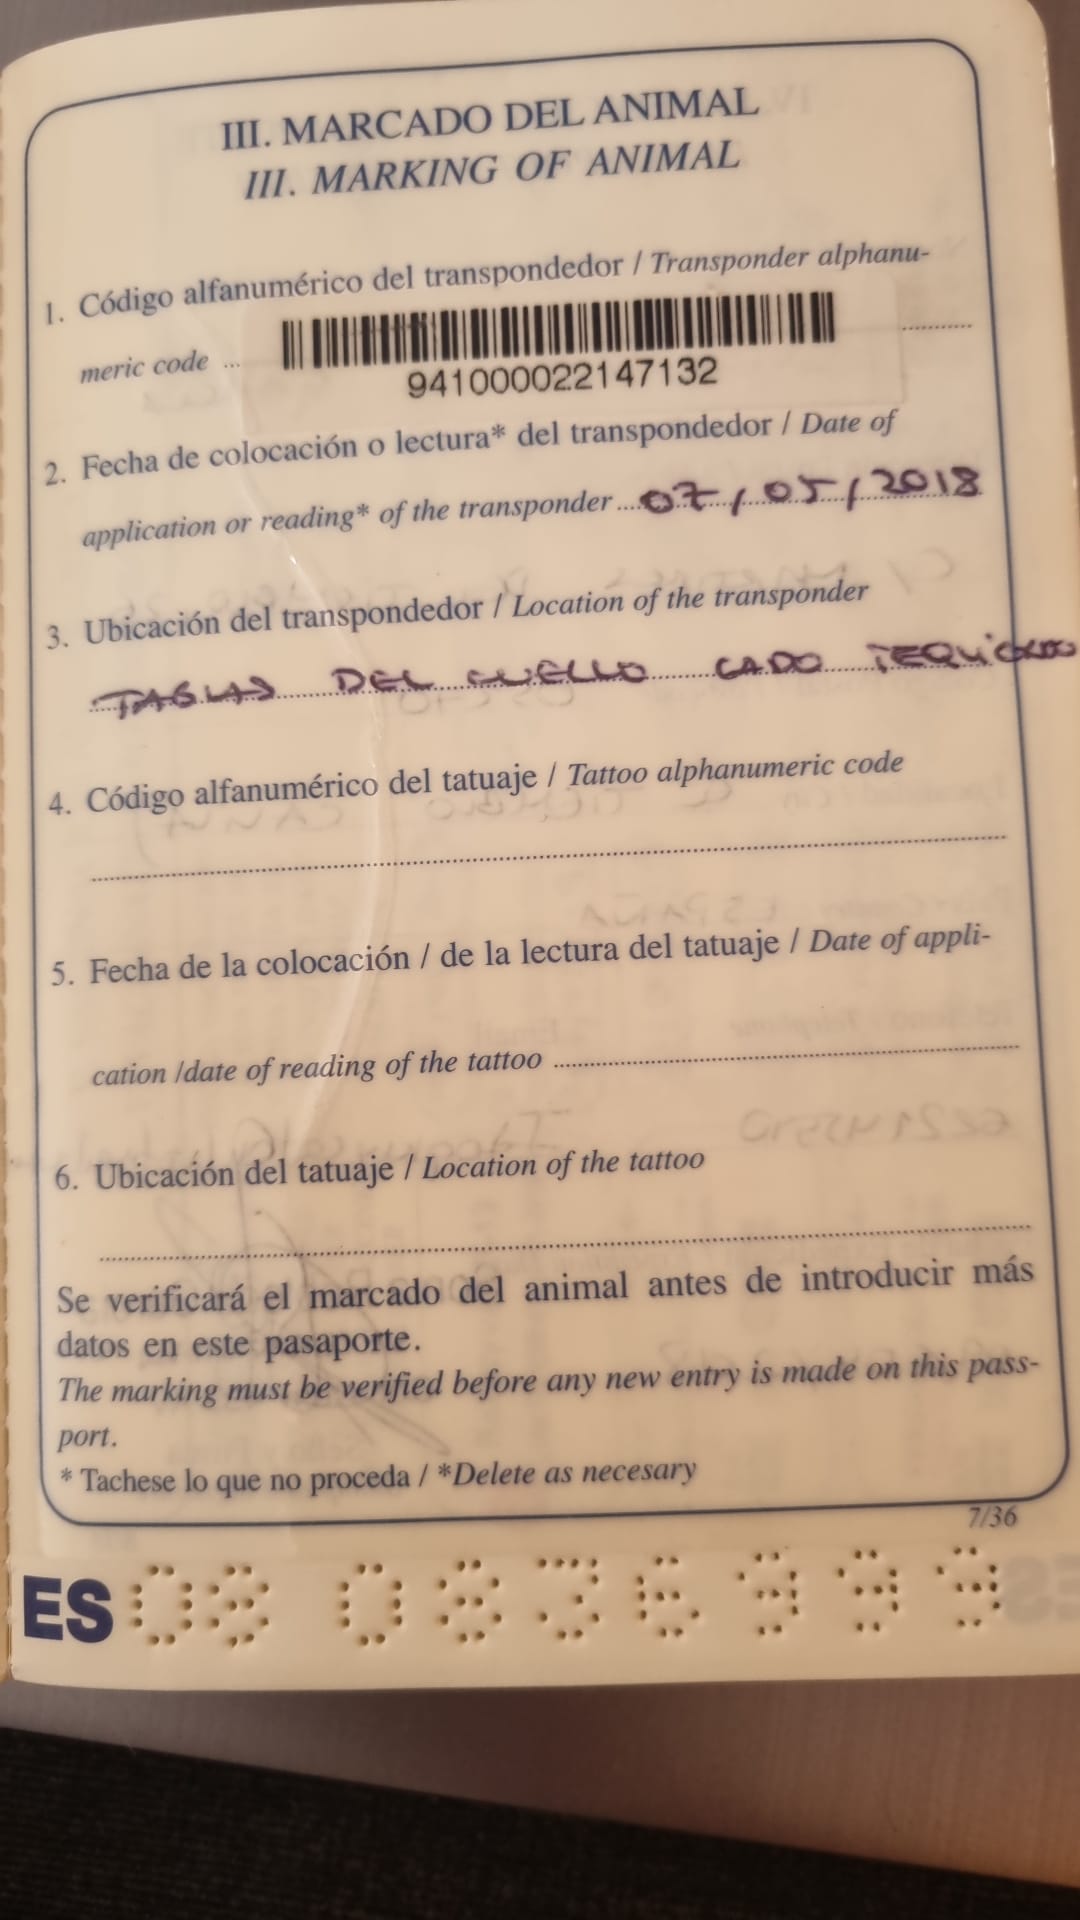 III. MARCADO DEL ANIMAL
III. MARKING OF ANIMAL
1. Código alfanumérico del transpondedor / Transponder alphanu-
meric code ...
941000022147132
2. Fecha de colocación o lectura* del transpondedor / Date of
application or reading* of the transponder .... 07/05/2018
3. Ubicación del transpondedor / Location of the transponder
DEL CUELLO
4. Código alfanumérico del tatuaje / Tattoo alphanumeric code
5. Fecha de la colocación / de la lectura del tatuaje / Date of appli-
cation /date of reading of the tattoo
6. Ubicación del tatuaje / Location of the tattoo
Se verificará el marcado del animal antes de introducir más
datos en este pasaporte.
The marking must be verified before any new entry is made on this pass-
port.
* Tachese lo que no proceda / *Delete as necesary
7/36
ES 08 0836999